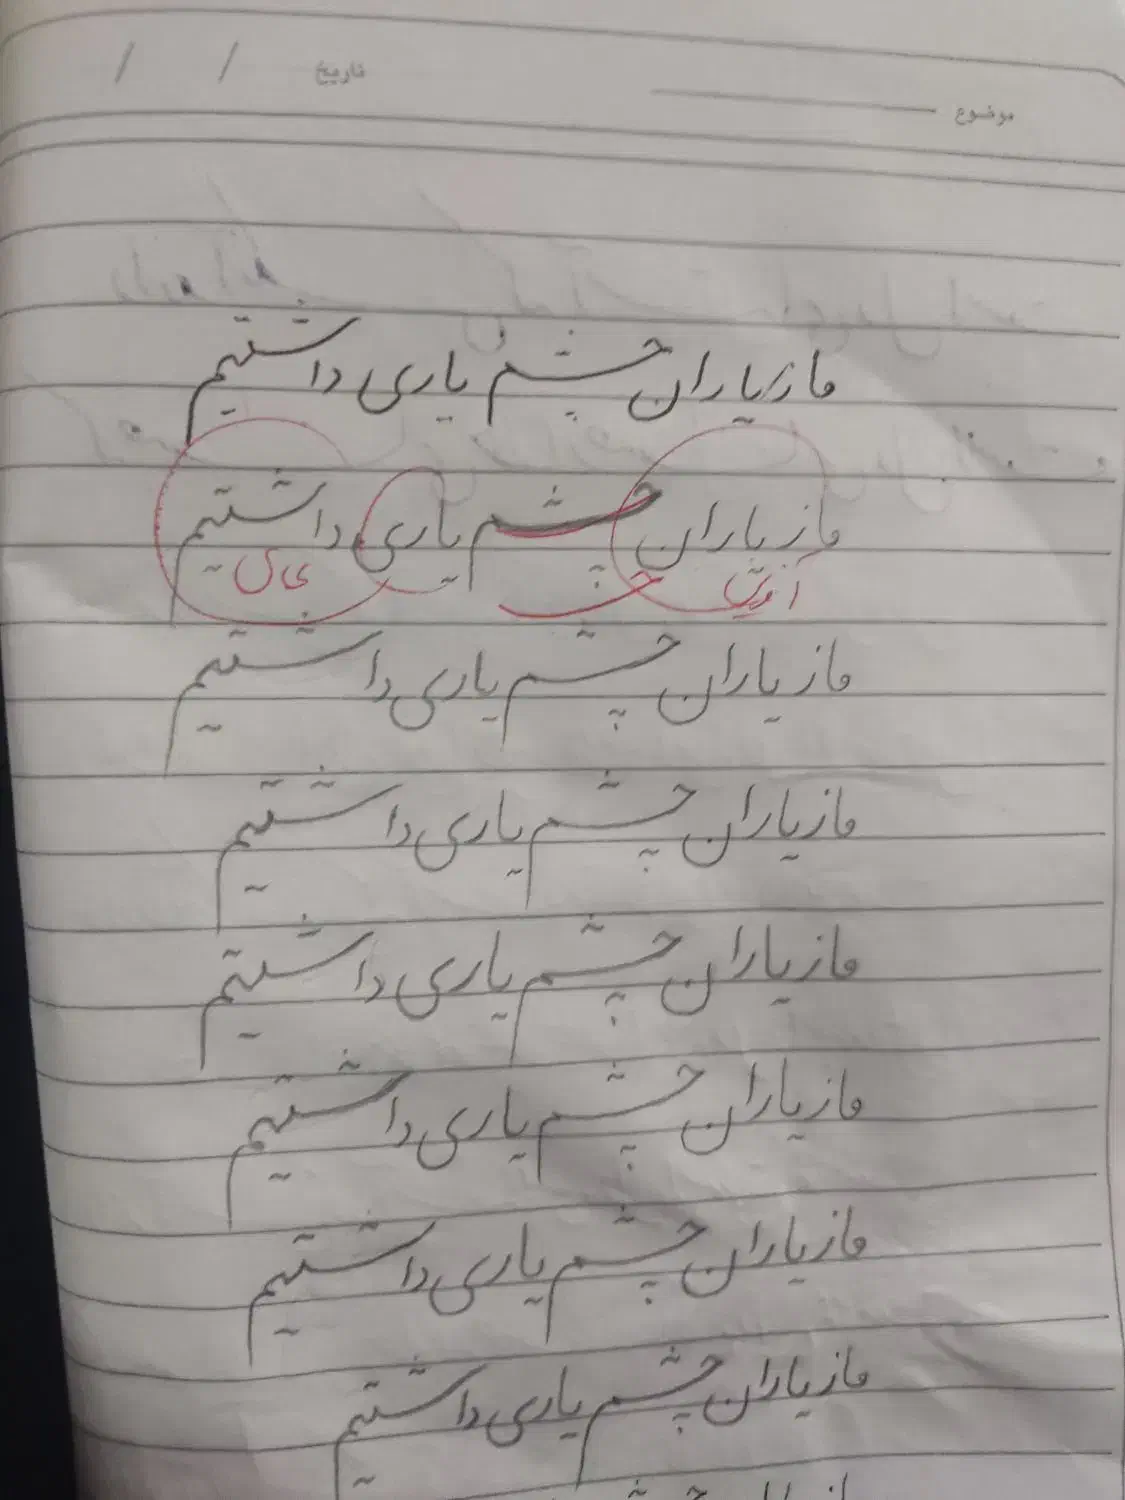 موضوع تاریخ / /
ما ز یاران چشم یاری داشتیم
ما ز یاران چشم یاری داشتیم
آفرین عالی
ما ز یاران چشم یاری داشتیم
ما ز یاران چشم یاری داشتیم
ما ز یاران چشم یاری داشتیم
ما ز یاران چشم یاری داشتیم
ما ز یاران چشم یاری داشتیم
ما ز یاران چشم یاری داشتیم